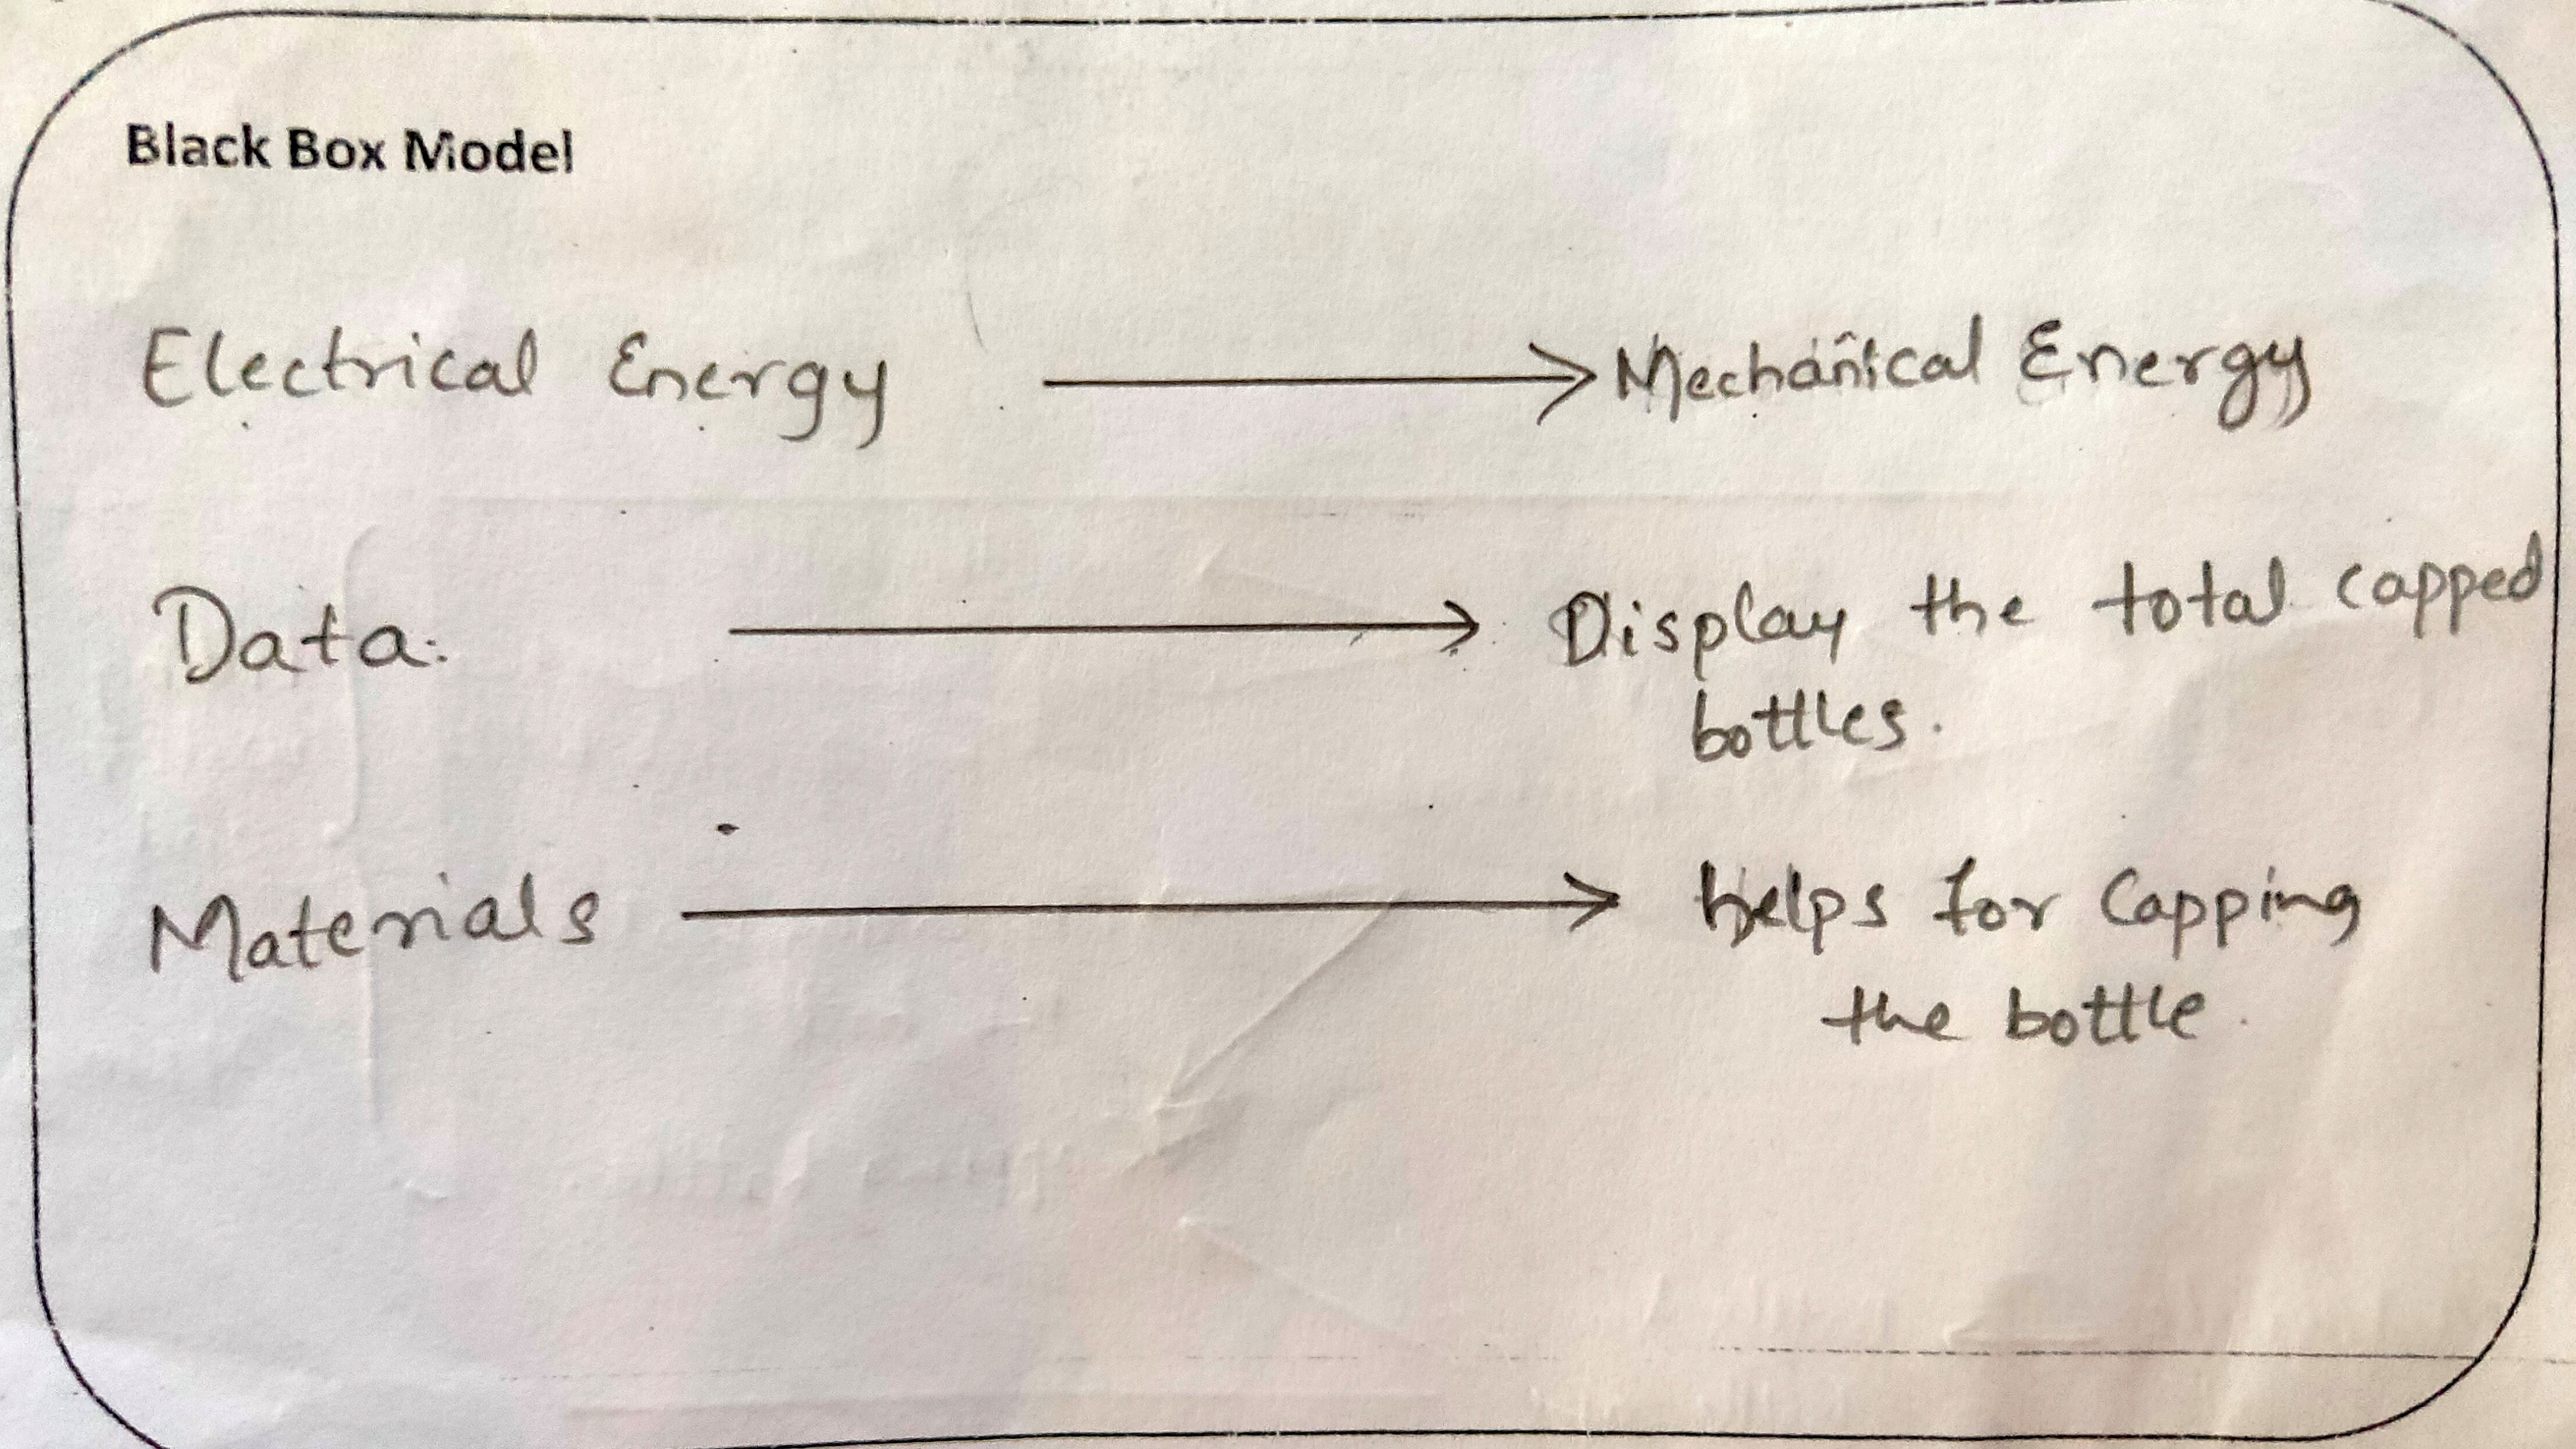 Black Box Model
Electrical Energy → Mechanical Energy
Data. → Display the total capped
bottles.
Materials → helps for Capping
the bottle.